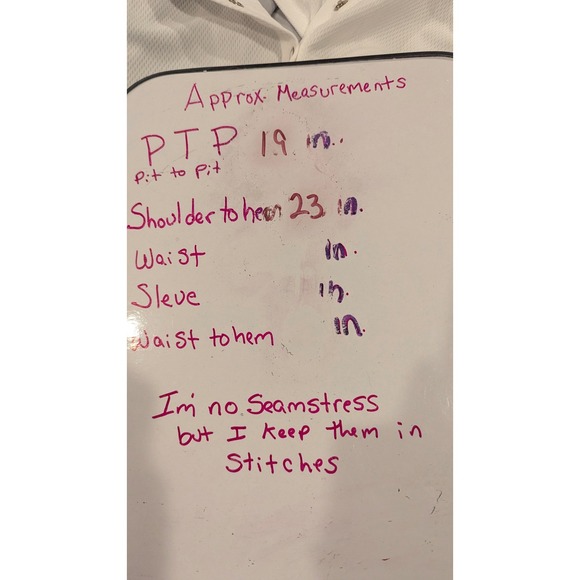 Approx. Measurements
PTP 19 in..
Pit to Pit
Shoulder to hem 23 in.
Waist in.
Sleve in.
Waist to hem in.
I'm no Seamstress
but I keep them in
Stitches